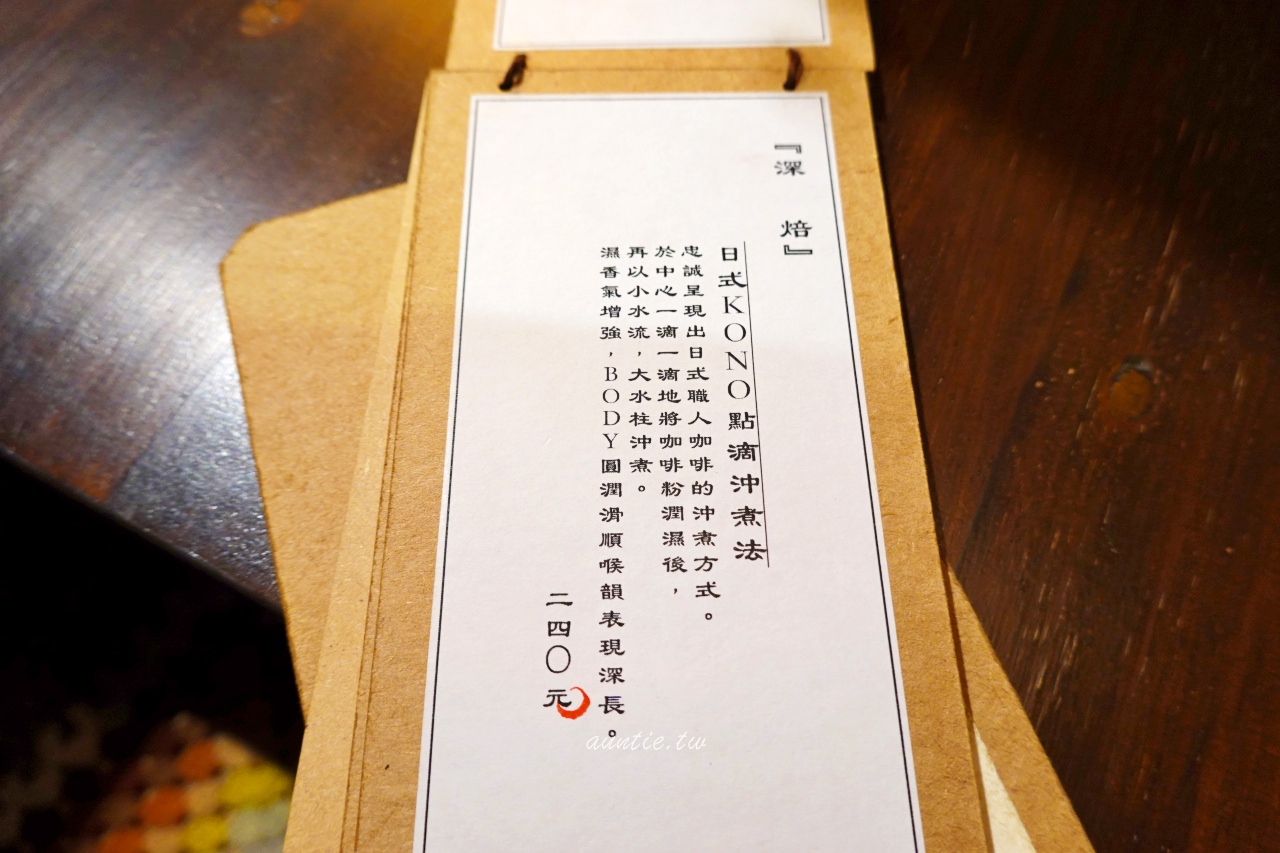 『深焙』
日式KONO點滴沖煮法
忠誠呈現出日式職人咖啡的沖煮方式。
於中心一滴一滴地將咖啡粉潤濕後，
再以小水流，大水柱沖煮。
濕香氣增強，BODY圓潤滑順喉韻表現深長。
二四〇元
auntie.tw